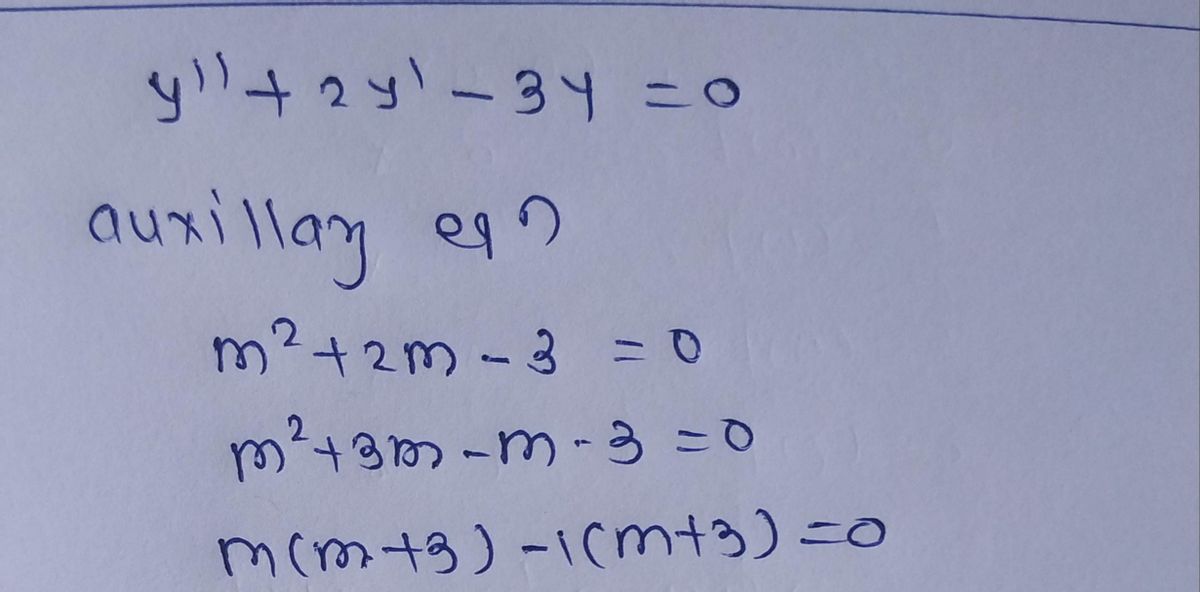 y'' + 2y' - 3y = 0
auxillary eqn
m² + 2m - 3 = 0
m² + 3m - m - 3 = 0
m(m+3) - 1(m+3) = 0